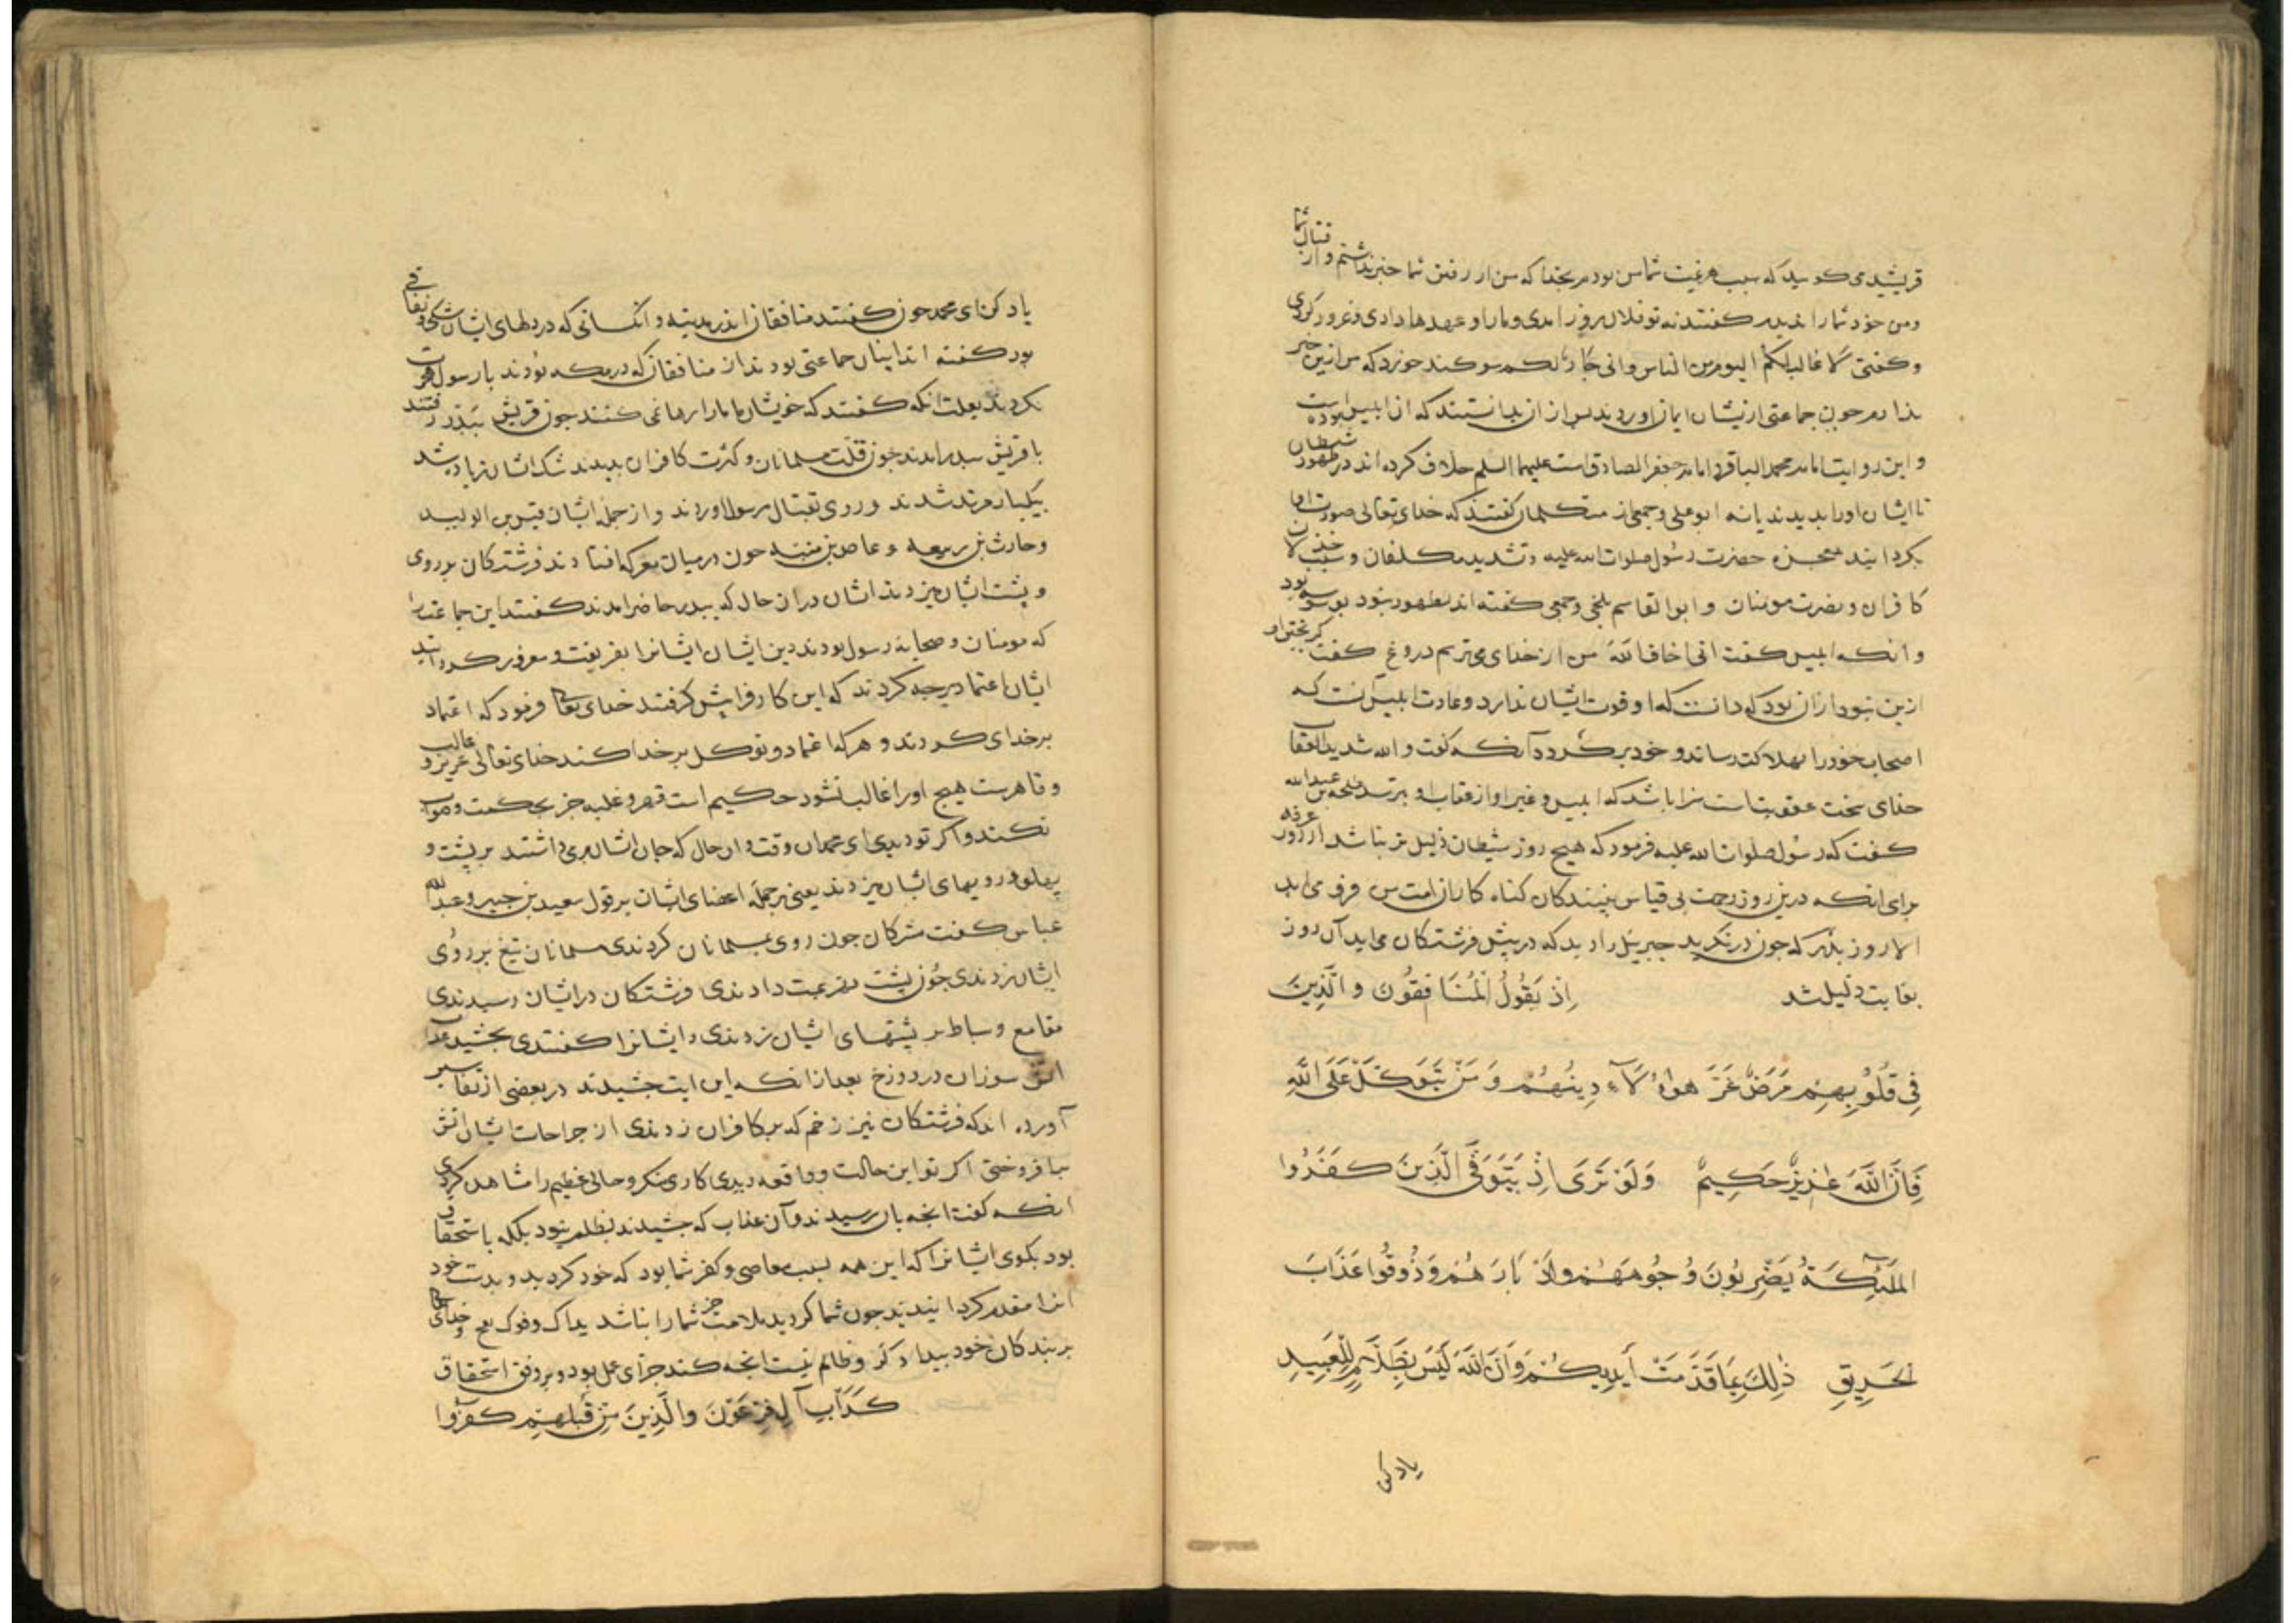 قریشیدی کوید که سبب هزیمت شما من بودم بخدا که من از رفتن شما خبر نداشتم و از قتال شما
ومن خود شما را ندیدم کفتند نه تو فلان روز امدی و مارا وعهدها دادی وغرور کردی
وکفتی لا غالب لکم الیوم من الناس وانی جار لکم سوکند خورد که من ازین خبر
ندارم چون جماعتی ازیشان ایمان اوردند پس از ان بدانستند که ان ابلیس بوده است
واین روایت امام محمد الباقر و امام جعفر الصادق است علیهما السلم خلاف کرده اند در ظهور شیطان
تا ایشان اورا بدیدند یانه ابو علی وجمعی از متکلمان کفتند که خدای تعالی صورت او
بکردانید معجزه حضرت رسول صلوات الله علیه وتشدید مکلفان و سبب خذلان
کافران ونصرت مومنان وابوالقاسم بلخی وجمعی کفته اند بظهور نبود بوسوسه بود
وانکه ابلیس کفت انی اخاف الله من از خدای می ترسم دروغ کفت کریختن او
ازین نبود از ان بود که دانست که او قوت ایشان ندارد وعادت ابلیس آنست که
اصحاب خود را بهلاکت رساند و خود برکردد آنکه کفت والله شدید العقاب
خدای سخت عقوبتست سزا باشد که ابلیس و غیر او از عقاب او بترسد طلحة بن عبدالله
کفت که رسول صلوات الله علیه فرمود که هیچ روز شیطان ذلیل تر نباشد از روز عرفه
برای انکه درین روز رحمت بی قیاس بینند کان کناه کاران امت من فرو می اید
الا روز بدر که چون در نکرید جبرئیل را دید که در پیش فرشتکان می اید آن روز
بغایت ذلیل شد اِذْ یَقُولُ الْمُنَافِقُونَ وَالَّذِینَ
فِی قُلُوبِهِمْ مَرَضٌ غَرَّ هؤُلَآءِ دِینُهُمْ وَمَنْ یَتَوَکَّلْ عَلَی اللَّهِ
فَاِنَّ اللَّهَ عَزِیزٌ حَکِیمٌ وَلَوْ تَرَی اِذْ یَتَوَفَّی الَّذِینَ کَفَرُوا
الْمَلٰٓئِکَةُ یَضْرِبُونَ وُجُوهَهُمْ وَاَدْبَارَهُمْ وَذُوقُوا عَذَابَ
الْحَرِیقِ ذٰلِکَ بِمَا قَدَّمَتْ أَیْدِیکُمْ وَاَنَّ اللَّهَ لَیْسَ بِظَلَّامٍ لِلْعَبِیدِ
یاد کن
یاد کن ای محمد چون کفتند منافقان اندر مدینه و انکسانی که در دلهای ایشان شکی و نفاقی
بود کفته اند اینان جماعتی بودند از منافقان که در مکه بودند با رسول هجرت
نکردند بعلت انکه کفتند که خویشان ما مارا رها نمی کنند چون قریش ببدر رفتند
با قریش ببدر امدند چون قلت مسلمانان و کثرت کافران بدیدند شک ایشان زیاده شد
بیکبار مرتد شدند و روی بقتال رسول اوردند و از جمله ایشان قیس بن الولید
وحارث بن ربیعه و عاص بن منبه چون در میان معرکه افتادند فرشتکان بر روی
و پشت ایشان میزدند ایشان دران حال که ببدر حاضر امدند کفتند این جماعت را
که مومنان و صحابه رسول بودند دین ایشان ایشانرا بفریفت و مغرور کردانید
ایشان اعتماد بر چه کردند که این کار فرا پیش کرفتند خدای تعالی فرمود که اعتماد
برخدای کردند و هرکه اعتماد و توکل بر خدا کند خدای تعالی عزیز و غالب
و قاهرست هیچ اورا غالب نشود حکیم است قهر و غلبه جز بحکمت وصواب
نکند و اکر تو دیدی ای محمد ان وقت و ان حال که جان ایشان بر می داشتند بر پشت و
پهلو و رویهای ایشان میزدند یعنی بر جمله اعضای ایشان بر قول سعید بن جبیر و عبدالله
عباس کفت مشرکان چون روی بمسلمانان کردندی مسلمانان تیغ بر روی
ایشان زدندی چون پشت بهزیمت دادندی فرشتکان در ایشان رسیدندی
مقامع و سیاط بر پشتهای ایشان زدندی و ایشانرا کفتندی بچشید عذاب
اتش سوزان در دوزخ بعد از انکه این ایت چشیدند در بعضی از تفاسیر
آورده اند که فرشتکان نیز زخم که بر کافران زدندی از جراحات ایشان اتش
بیافروختی اکر تو این حالت و واقعه دیدی کاری منکر و حالی عظیم را مشاهده کردی
انکه کفت انچه بان رسیدند و آن عذاب که چشیدند بظلم نبود بلکه باستحقاق
بود بکوی ایشانرا که این همه بسبب معاصی و کفر شما بود که خود کردید و بدست خود
انرا مقدم کردانیدید چون شما کردید ملامت جز شما را نباشد یداک اوکتا وفوک نفخ و خدای تعالی
بر بندکان خود بیدادکر و ظالم نیست انچه کند جزای عمل بود و بر وفق استحقاق
کَدَأْبِ آلِ فِرْعَوْنَ وَالَّذِینَ مِنْ قَبْلِهِمْ کَفَرُوا